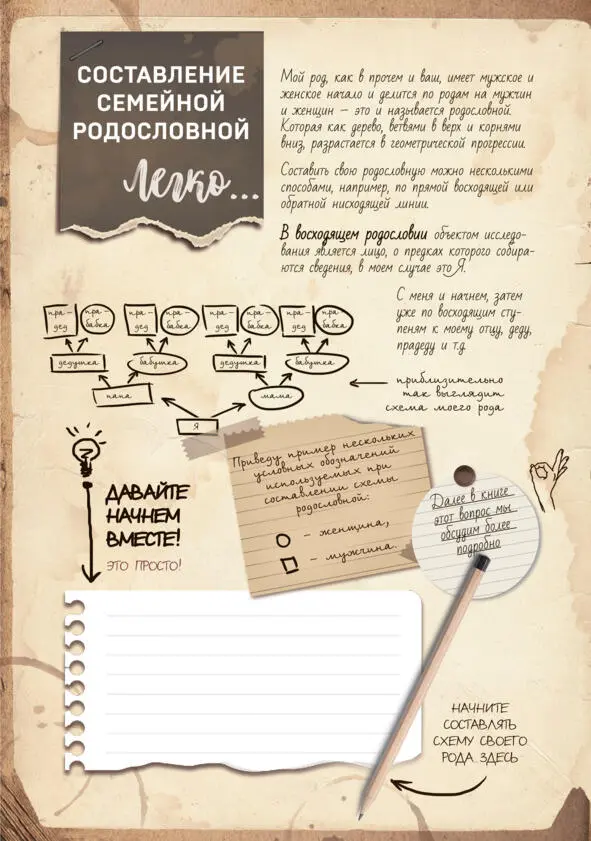 СОСТАВЛЕНИЕ
СЕМЕЙНОЙ
РОДОСЛОВНОЙ
Легко...
Мой род, как в прочем и ваш, имеет мужское и
женское начало и делится по родам на мужчин
и женщин – это и называется родословной.
Которая как дерево, ветвями в верх и корнями
вниз, разрастается в геометрической прогрессии.
Составить свою родословную можно несколькими
способами, например, по прямой восходящей или
обратной нисходящей линии.
В восходящем родословии объектом исследо-
вания является лицо, о предках которого собира-
ются сведения, в моем случае это Я.
С меня и начнем, затем
уже по восходящим сту-
пеням к моему отцу, деду,
прадеду и т.д.
пра- пра- пра- пра- пра- пра- пра- пра-
дед бабка дед бабка дед бабка дед бабка
дедушка бабушка дедушка бабушка
папа мама
Я
приблизительно
так выглядит
схема моего рода
Приведу пример нескольких
условных обозначений
используемых при
составлении схемы
родословной:
– женщина,
– мужчина.
Далее в книге
этот вопрос мы
обсудим более
подробно
ДАВАЙТЕ
НАЧНЕМ
ВМЕСТЕ!
ЭТО ПРОСТО!
НАЧНИТЕ
СОСТАВЛЯТЬ
СХЕМУ СВОЕГО
РОДА ЗДЕСЬ